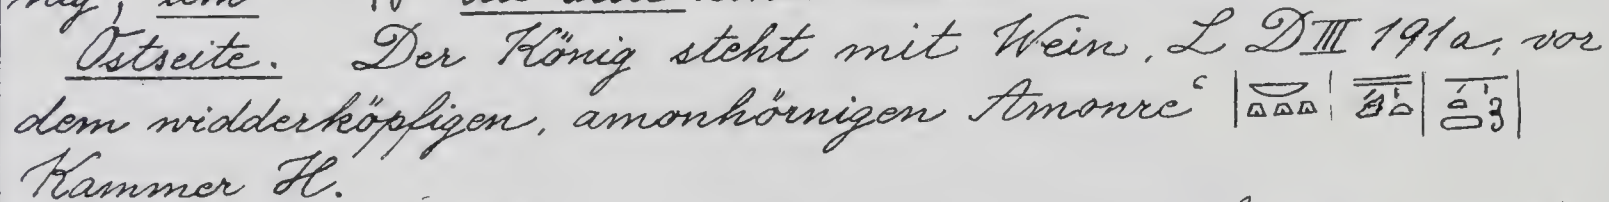 Ostseite. Der König steht mit Wein, L D III 191a, vor
dem widderköpfigen, amonhörnigen Amonreʿ
Kammer H.